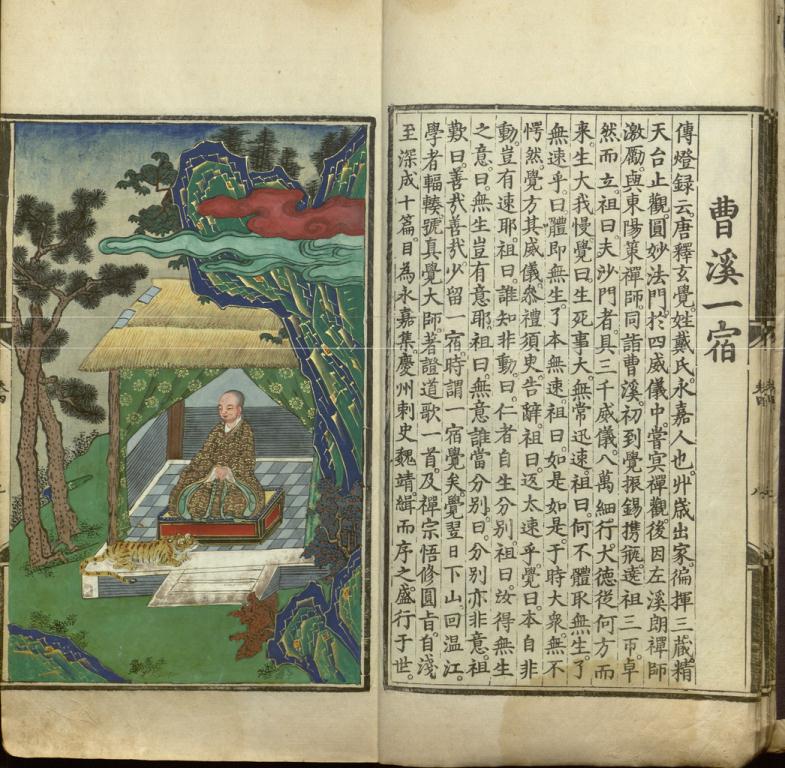 曹溪一宿
傳燈錄云。唐釋玄覺。姓戴氏。永嘉人也。丱歲出家。徧揮三藏。精
天台止觀。圓妙法門。於四威儀中。嘗冥禪觀。後因左溪朗禪師
激勵。與東陽策禪師。同詣曹溪。初到覺振錫携瓶。遶祖三帀。卓
然而立。祖曰。夫沙門者。具三千威儀。八萬細行。大德從何方而
來。生大我慢。覺曰。生死事大。無常迅速。祖曰。何不體取無生。了
無速乎。曰體即無生。了本無速。祖曰。如是如是。于時大衆。無不
愕然。覺方具威儀。叅禮須臾。告辭。祖曰。返太速乎。覺曰。本自非
動。豈有速耶。祖曰。誰知非動。曰。仁者自生分別。祖曰。汝得無生
之意。曰。無生豈有意耶。祖曰。無意誰當分別。曰。分別亦非意。祖
歎曰。善哉善哉。少留一宿。時謂一宿覺矣。覺翌日下山。回温江。
學者輻輳。號真覺大師。著證道歌一首。及禪宗悟修圓旨。自淺
至深。成十篇。目為永嘉集。慶州刺史魏靖。緝而序之。盛行于世。